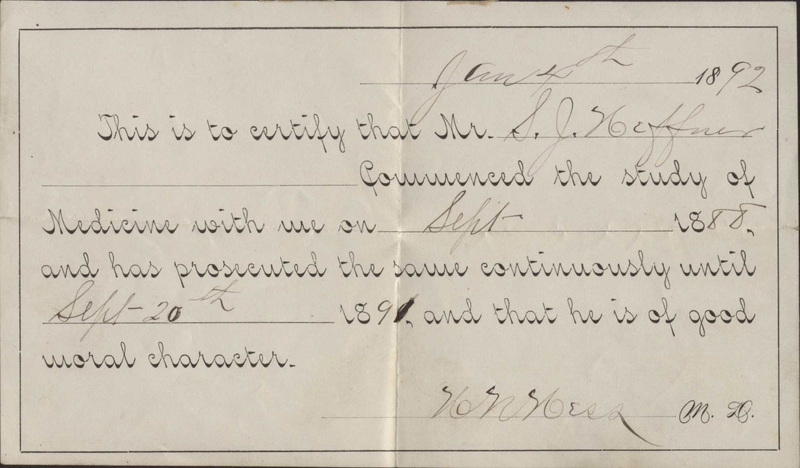 Jan 4th 1892
This is to certify that Mr. S. J. Heffner
Commenced the study of
Medicine with me on Sept 1888,
and has prosecuted the same continuously until
Sept 20th 1891, and that he is of good
moral character.
H N Hess M. D.